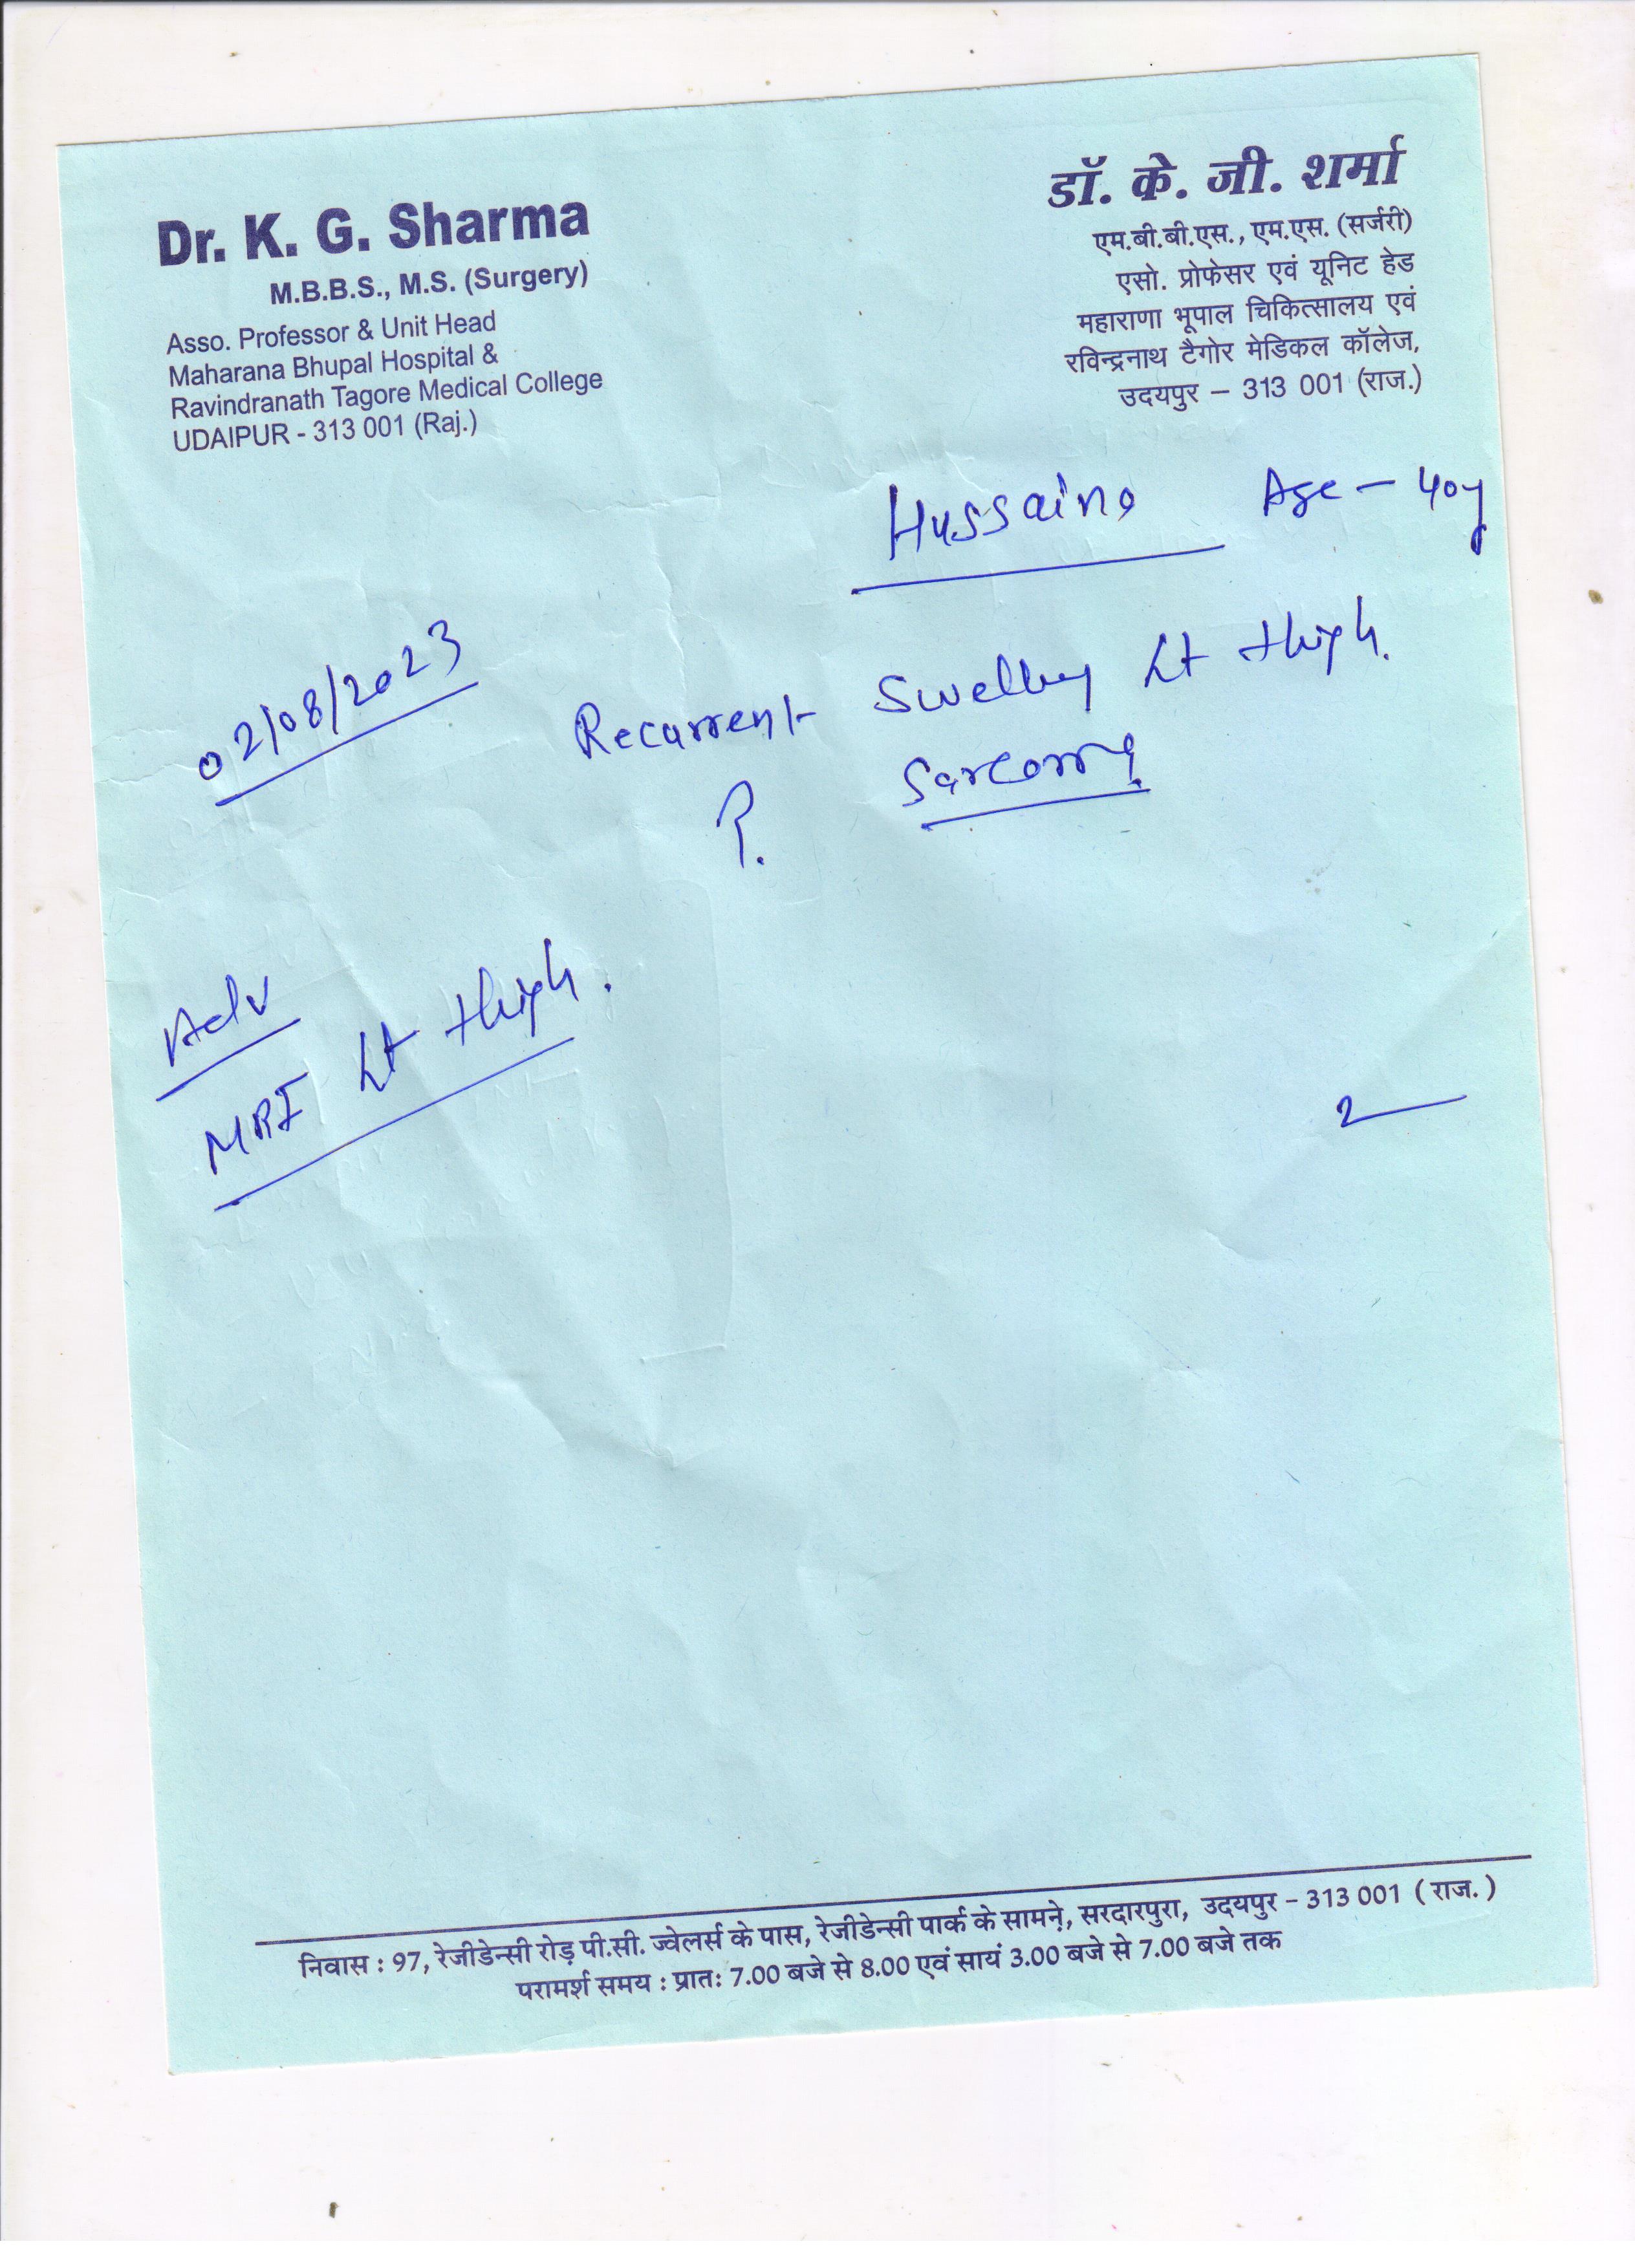 Dr. K. G. Sharma
M.B.B.S., M.S. (Surgery)
Asso. Professor & Unit Head
Maharana Bhupal Hospital &
Ravindranath Tagore Medical College
UDAIPUR - 313 001 (Raj.)
डॉ. के. जी. शर्मा
एम.बी.बी.एस., एम.एस. (सर्जरी)
एसो. प्रोफेसर एवं यूनिट हेड
महाराणा भूपाल चिकित्सालय एवं
रविन्द्रनाथ टैगोर मेडिकल कॉलेज,
उदयपुर – 313 001 (राज.)
Hussaina Age – 40y
02/08/2023
Recurrent Swelling Lt thigh.
? Sarcoma
Adv
MRI Lt thigh.
निवास : 97, रेजीडेन्सी रोड़ पी.सी. ज्वेलर्स के पास, रेजीडेन्सी पार्क के सामने, सरदारपुरा, उदयपुर – 313 001 ( राज. )
परामर्श समय : प्रातः 7.00 बजे से 8.00 एवं सायं 3.00 बजे से 7.00 बजे तक